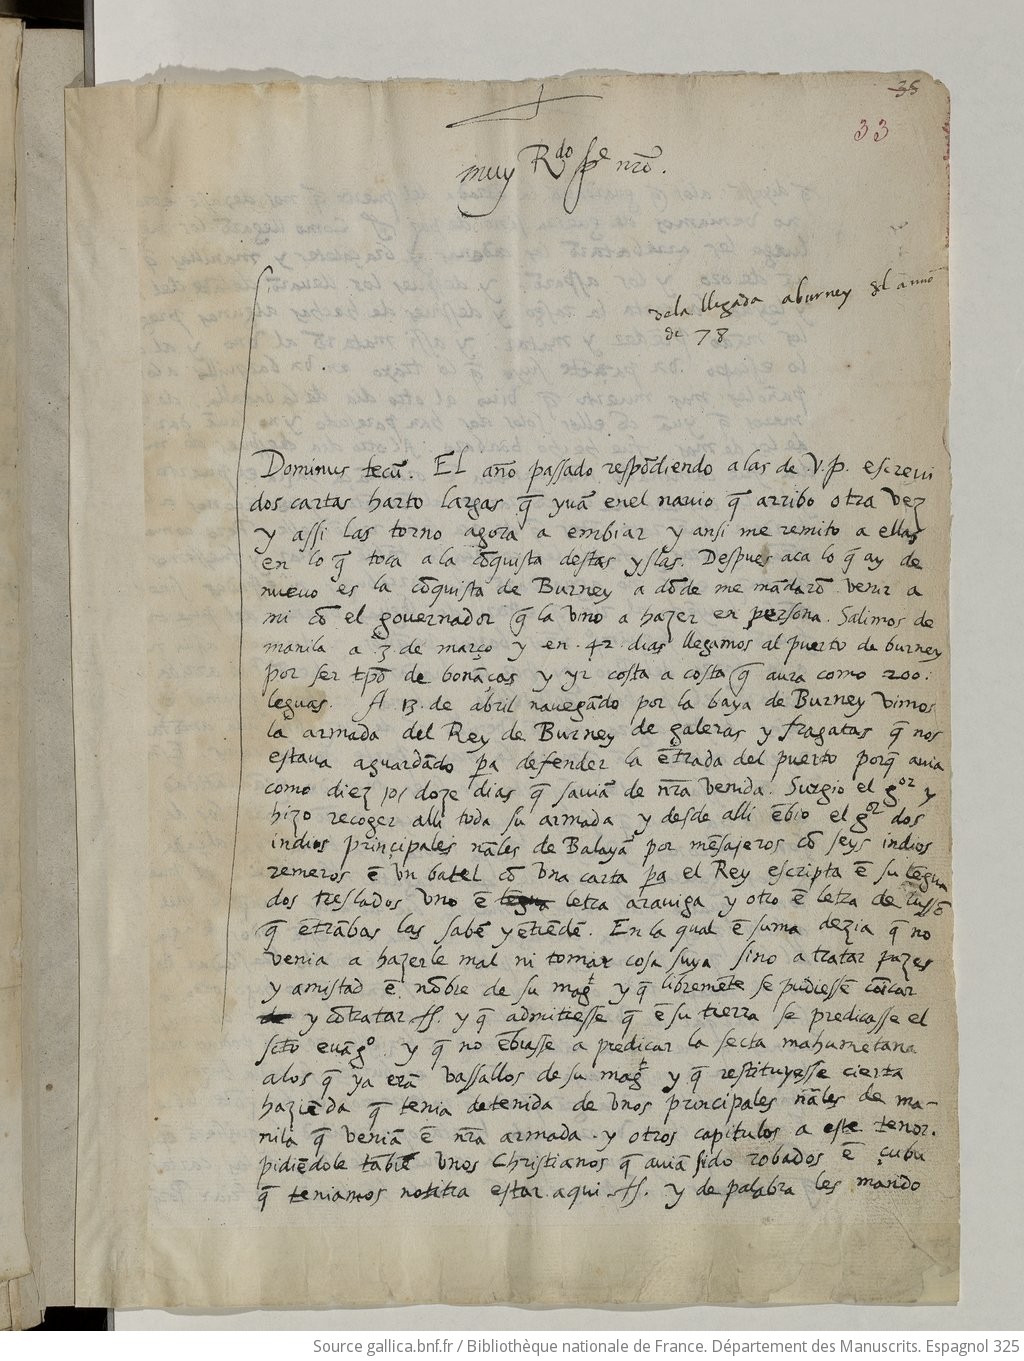 38
33
muy R.do pe nr̃o.
dela llegada a burney del año
de 78
Dominus tecũ. El año passado respõdiendo a las de .V.p. escreui
dos cartas harto largas q̃ yuã enel nauio q̃ arribo otra vez
y assi las torno agora a embiar y ansi me remito a ellas
en lo q̃ toca a la cõquista destas yslas. Despues aca lo q̃ ay de
nueuo es la cõquista de Burney a dõde me mãdarõ venir a
mi cõ el gouernador q̃ la vino a hazer en persona. Salimos de
manila a 3 de março y en .42. dias llegamos al puerto de burney
por ser tpõ de bonãças y yr costa a costa q̃ aura como 200.
leguas. A 13. de abril nauegãdo por la baya de Burney vimos
la armada del Rey de Burney de galeras y fragatas q̃ nos
estaua aguardãdo pa defender la ẽtrada del puerto porq̃ auia
como diez o doze dias q̃ sauiã de nr̃a venida. Surgio el gor y
hizo recoger alli toda su armada y desde alli ẽbio el gor dos
indios principales nãles de Balayã por mẽsajeros cõ seys indios
remeros ẽ vn batel cõ vna carta pa el Rey escripta ẽ su lẽgua
dos treslados vno ẽ letra arauiga y otro ẽ letra de
q̃ ẽtrãbas las sabẽ y ẽtiẽdẽ. En la qual ẽ suma dezia q̃ no
venia a hazerle mal ni tomar cosa suya sino a tratar pazes
y amistad ẽ nõbre de su magt y q̃ libremẽte se pudiessẽ cõicar
y cõtratar ss. y q̃ admitiesse q̃ ẽ su tierra se predicasse el
scto euãgo. y q̃ no ẽbiasse a predicar la secta mahumetana
a los q̃ ya erã vassallos de su magt y q̃ restituyesse cierta
haziẽda q̃ tenia detenida de vnos principales nãles de ma-
nila q̃ veniã ẽ nr̃a armada. y otros capitulos a este tenor.
pidiẽdole tãbiẽ vnos Christianos q̃ auiã sido robados ẽ çubu
q̃ teniamos notitia estar aqui ss. y de palabra les mãdo
Source gallica.bnf.fr / Bibliothèque nationale de France. Département des Manuscrits. Espagnol 325